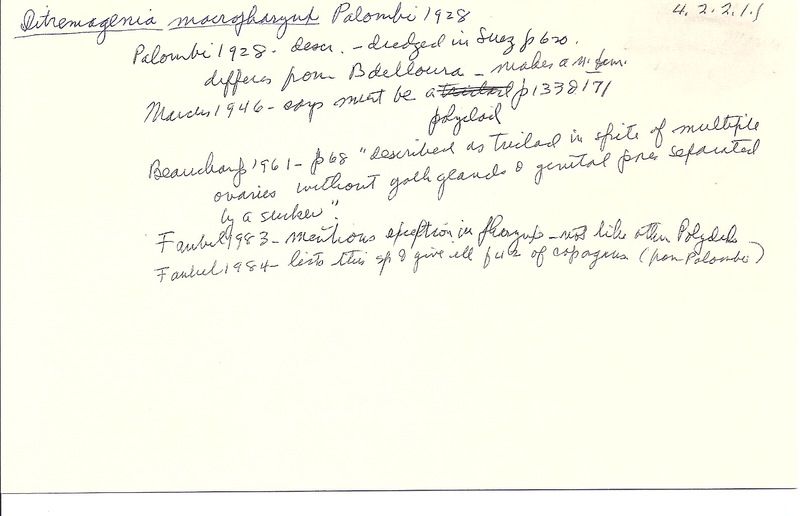 Ditremagenia macropharynx Palombi 1928
4.2.2.1.1
Palombi 1928 - descr. - dredged in Suez p 620.
differs from Bdelloura - makes a n. fam.
Marcus 1946 - says must be a triclad p 133 & 171
polyclad
Beauchamp 1961 - p 68 "described as triclad in spite of multiple
ovaries without yolk glands & genital pores separated
by a sucker".
Faubel 1983 - mentions exception in pharynx - not like other Polyclads
Faubel 1984 - lists this sp & give ill of copagnus (from Palombi)